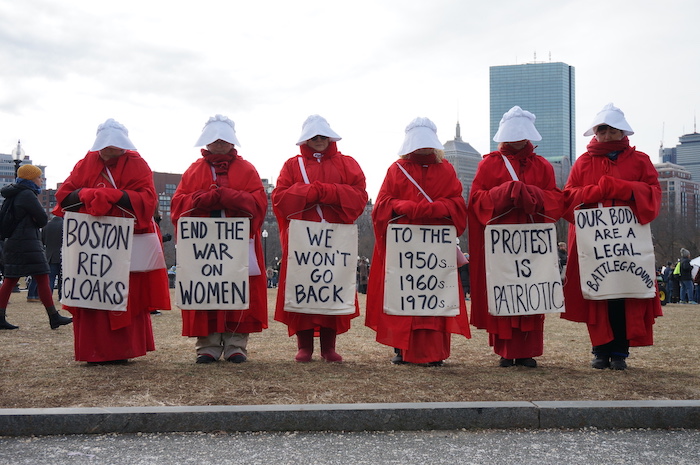 BOSTON
RED
CLOAKS
END THE
WAR
ON
WOMEN
WE
WON'T
GO
BACK
TO THE
1950s
1960s
1970s
PROTEST
IS
PATRIOTIC
OUR BODIES
ARE A
LEGAL
BATTLEGROUND